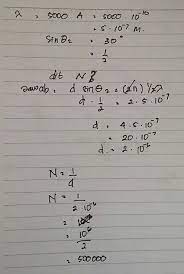 λ = 5000 A = 5000 . 10⁻¹⁰
= 5 . 10⁻⁷ M.
sin θ₂ = 30°
= 1/2
dit N?
Jawab : d sin θ₂ = (2n) ½ λ
d . 1/2 = 2 . 5 . 10⁻⁷
d = 4 . 5 . 10⁻⁷
= 20 . 10⁻⁷
d = 2 . 10⁻⁶
N = 1/d
N = 1/2 . 10⁻⁶
= 10⁶/2
= 500000